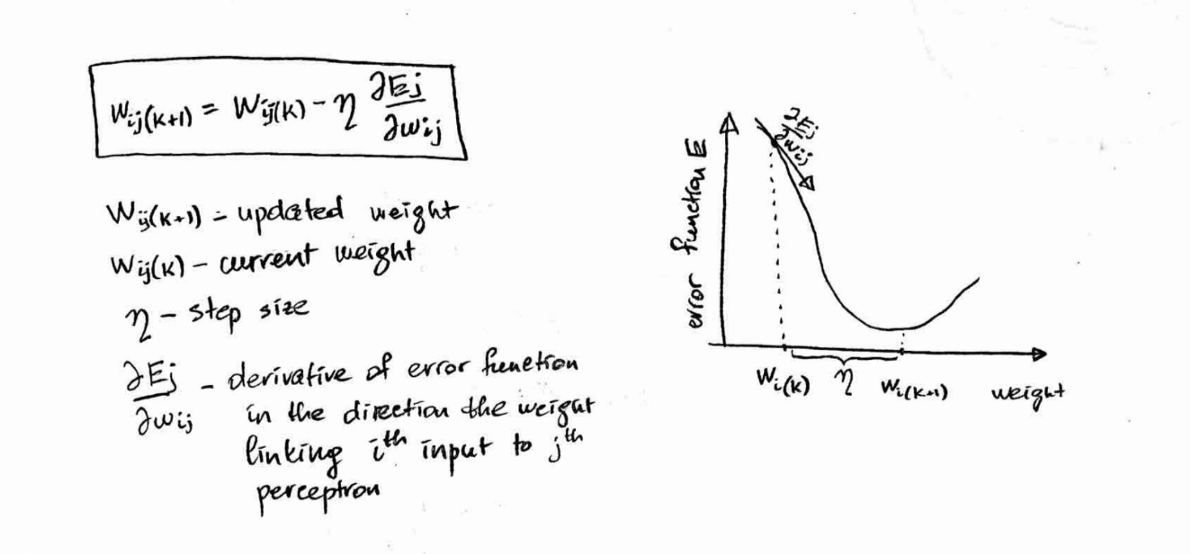 w_ij(k+1) = w_ij(k) - η ∂Ej/∂w_ij
w_ij(k+1) - updated weight
w_ij(k) - current weight
η - step size
∂Ej/∂w_ij - derivative of error function
in the direction the weight
linking i^th input to j^th
perceptron
error function E
∂Ej/∂w_ij
w_i(k) η w_i(k+1) weight